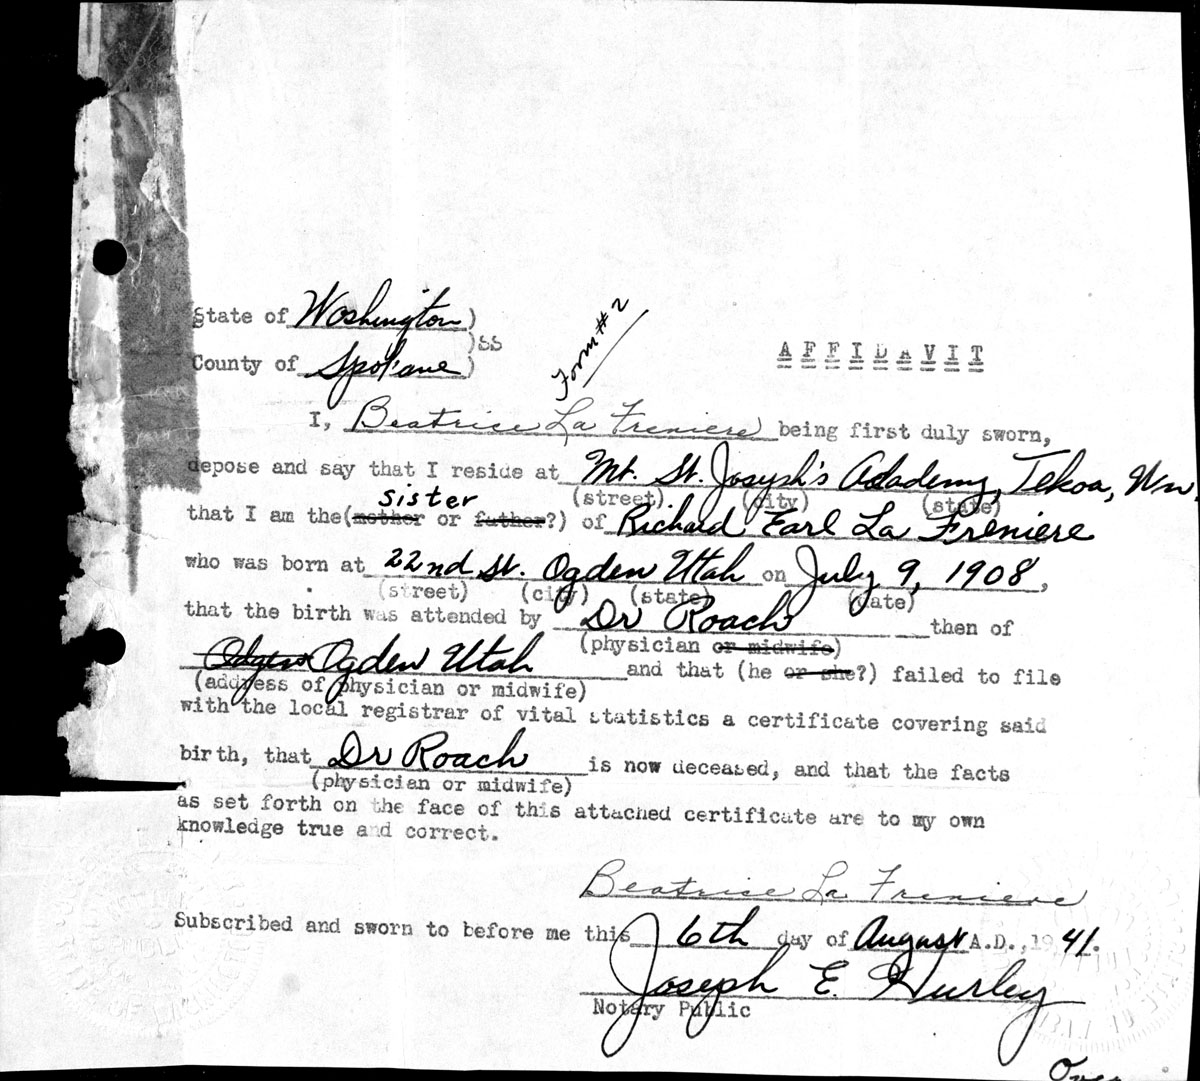 State of Washington)
)SS
Form #2
County of Spokane)
AFFIDAVIT
I, Beatrice La Freniere being first duly sworn,
depose and say that I reside at Mt. St. Joseph's Adademy, Tekoa, Wn
(street) (city) (state)
sister
that I am the(mother or father?) of Richard Earl La Freniere
who was born at 22nd St. Ogden Utah on July 9, 1908,
(street) (city) (state) (date)
that the birth was attended by Dr Roach then of
(physician or midwife)
Ogden Utah and that (he or she?) failed to file
(address of physician or midwife)
with the local registrar of vital statistics a certificate covering said
birth, that Dr Roach is now deceased, and that the facts
(physician or midwife)
as set forth on the face of this attached certificate are to my own
knowledge true and correct.
Beatrice La Freniere
Subscribed and sworn to before me this 6th day of August A.D.,1941.
Joseph E. Hurley
Notary Public
Over